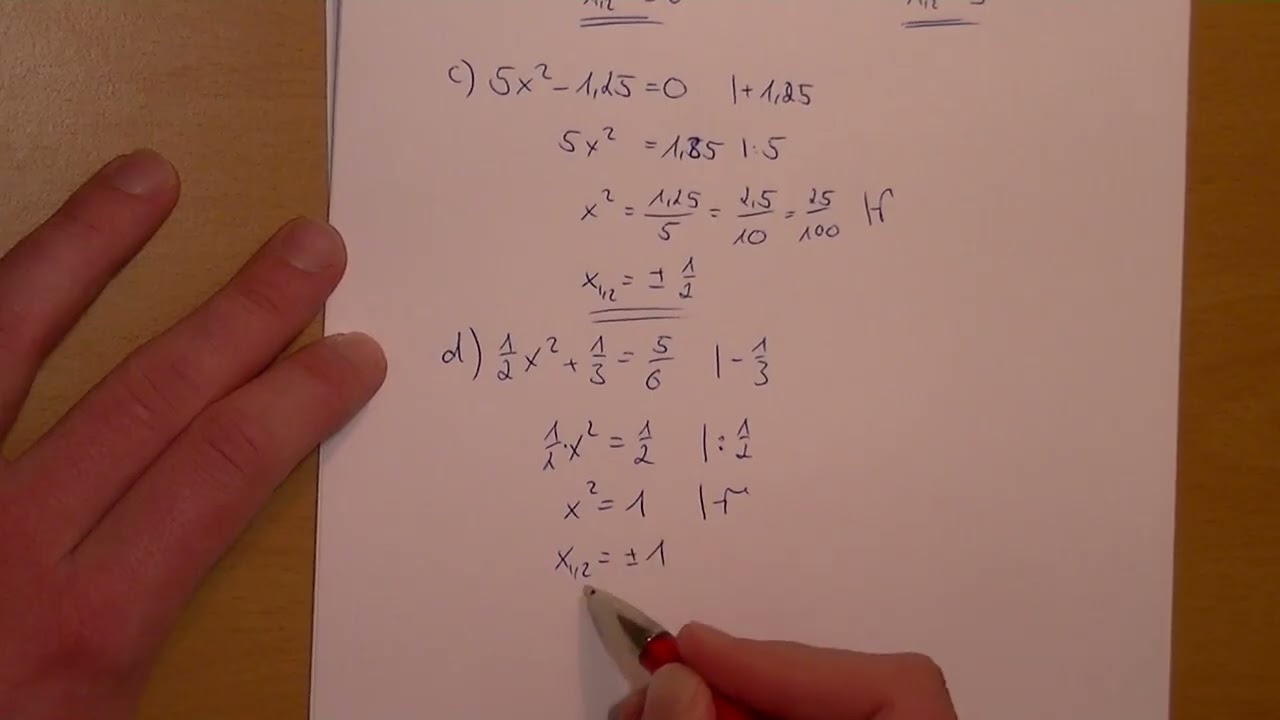 c) 5x² - 1,25 = 0 | + 1,25
5x² = 1,25 | : 5
x² = 1,25/5 = 2,5/10 = 25/100 | √
x₁,₂ = ± 1/2
d) 1/2 x² + 1/3 = 5/6 | - 1/3
1/2 · x² = 1/2 | : 1/2
x² = 1 | √
x₁,₂ = ± 1